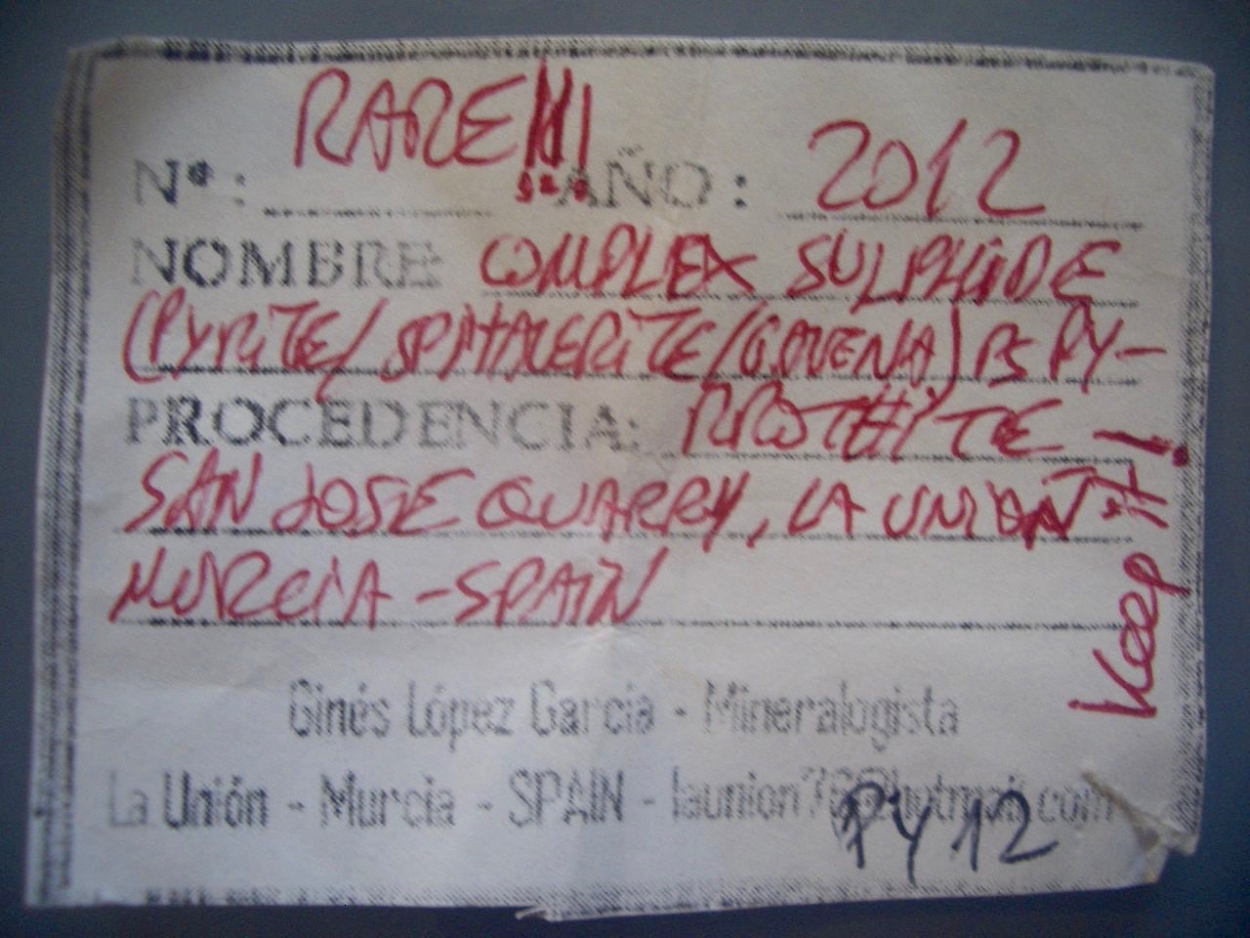 RARE!!!
Nº: AÑO: 2012
NOMBRE: COMPLEX SULPHIDE
(PYRITE/SPHALERITE/GALENA) PS PY-
PROCEDENCIA: RROTHITE -
SAN JOSE QUARRY, LA UNION
MURCIA - SPAIN
Keep it!
Ginés López García - Mineralogista
La Unión - Murcia - SPAIN - launion76@hotmail.com
PY 12